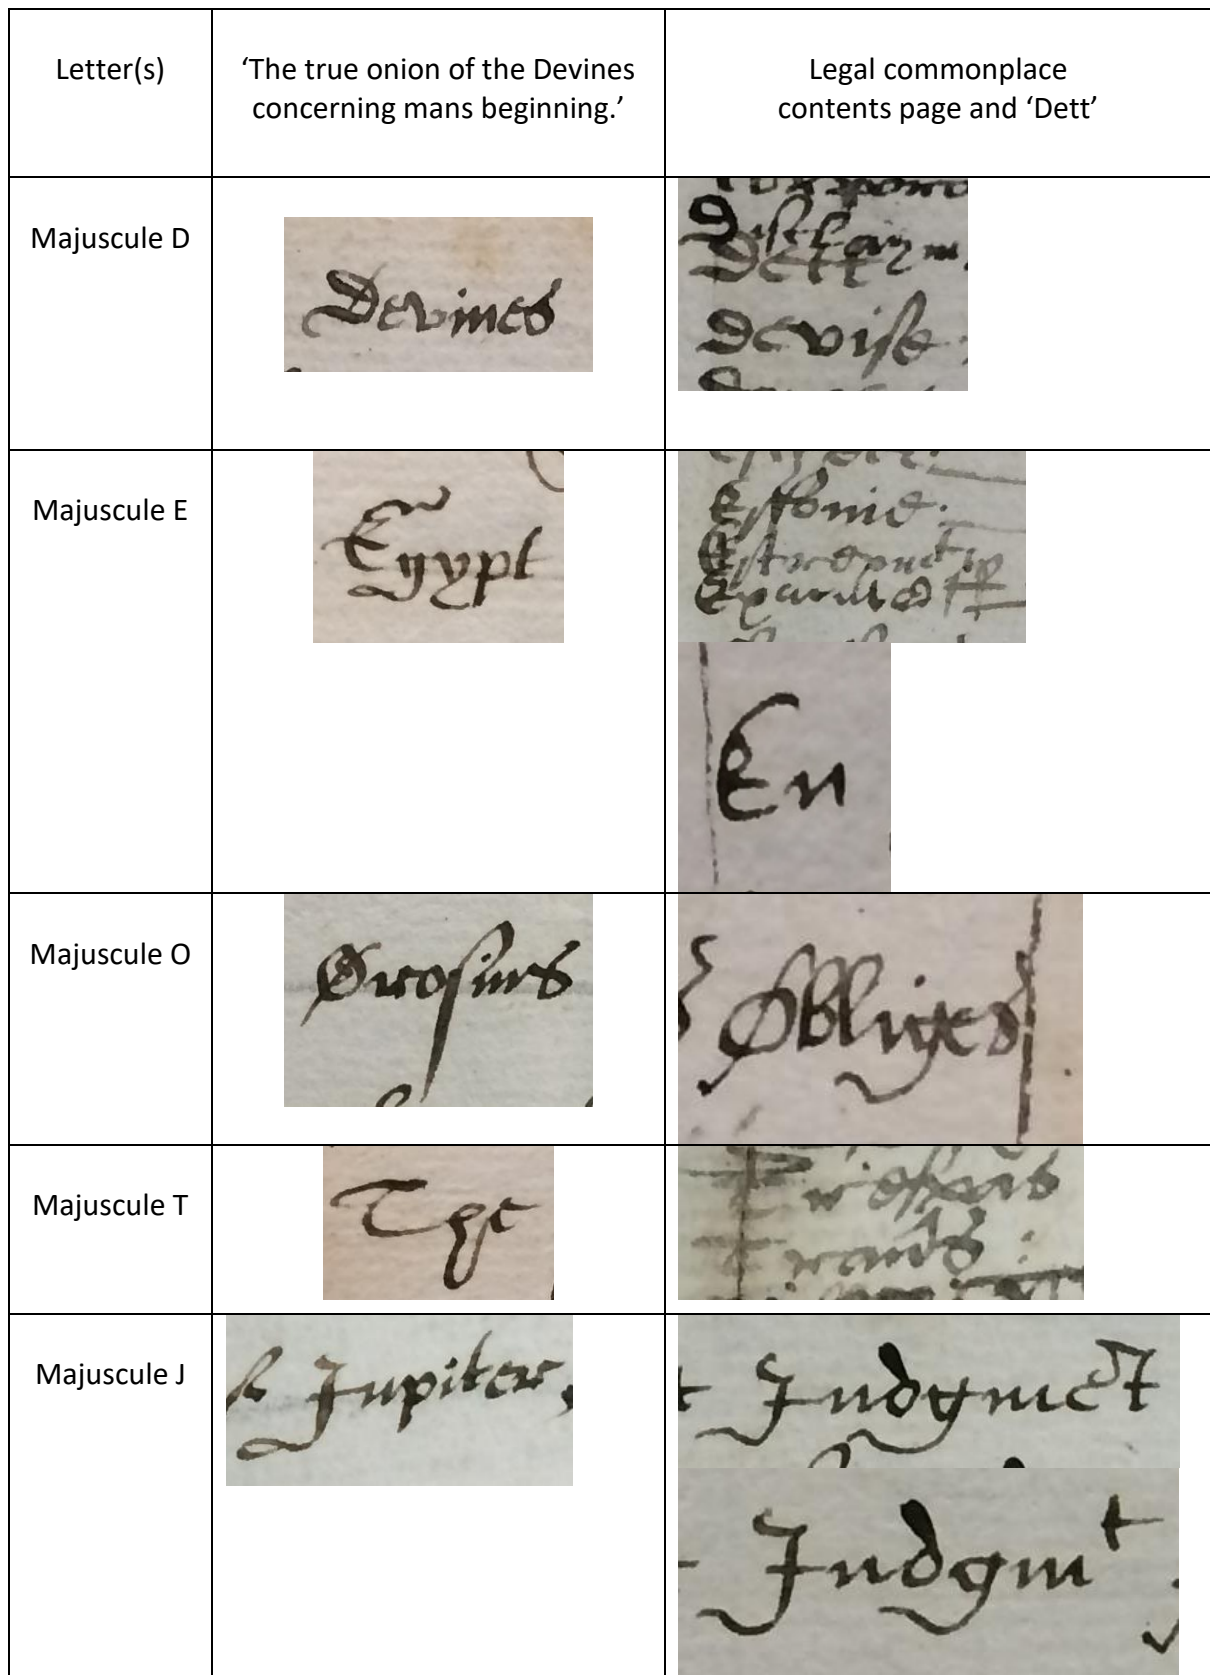 Letter(s)
‘The true onion of the Devines
concerning mans beginning.’
Legal commonplace
contents page and ‘Dett’
Majuscule D
Devines
Disclaym
Dett
Devise
Majuscule E
Egypt
Essonie
En
Majuscule O
Orosius
Obliges
Majuscule T
The
Trespas
Majuscule J
Jupiter,
Judgmet
Judgmt